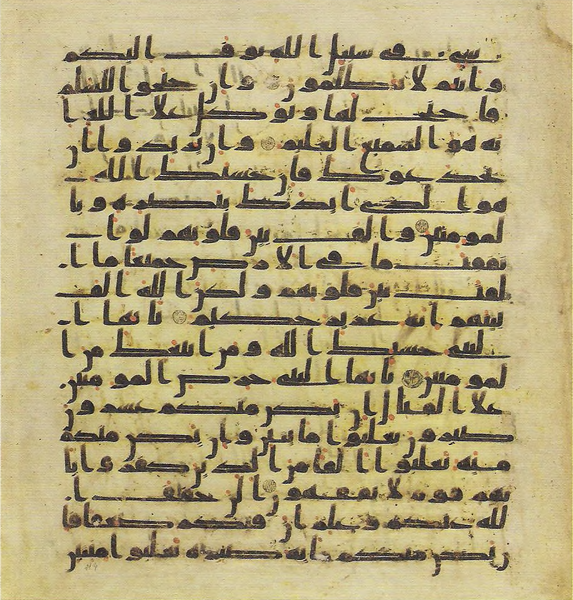 شي في سبيل الله يوف اليكم
وانتم لا تظلمون وان جنحوا للسلم
فاجنح لها وتوكل علا الله ا
نه هو السميع العليم وان يريدوا ان
يخدعوك فان حسبك الله
هو الذي ايدك بنصره وبا
لمومنين والف بين قلوبهم لو ا
نفقت ما في الارض جميعا ما ا
لفت بين قلوبهم ولكن الله الف
بينهم انه عزيز حكيم يايها ا
لنبي حسبك الله ومن اتبعك من ا
لمومنين يايها النبي حرض المومنين
علا القتال ان يكن منكم عشرون
صبرون يغلبوا مايتين وان يكن منكم
مايه يغلبوا الفا من الذين كفروا با
نهم قوم لا يفقهون الن خفف ا
لله عنكم وعلم ان فيكم ضعفا فا
ن يكن منكم مايه صبره يغلبوا مايتين